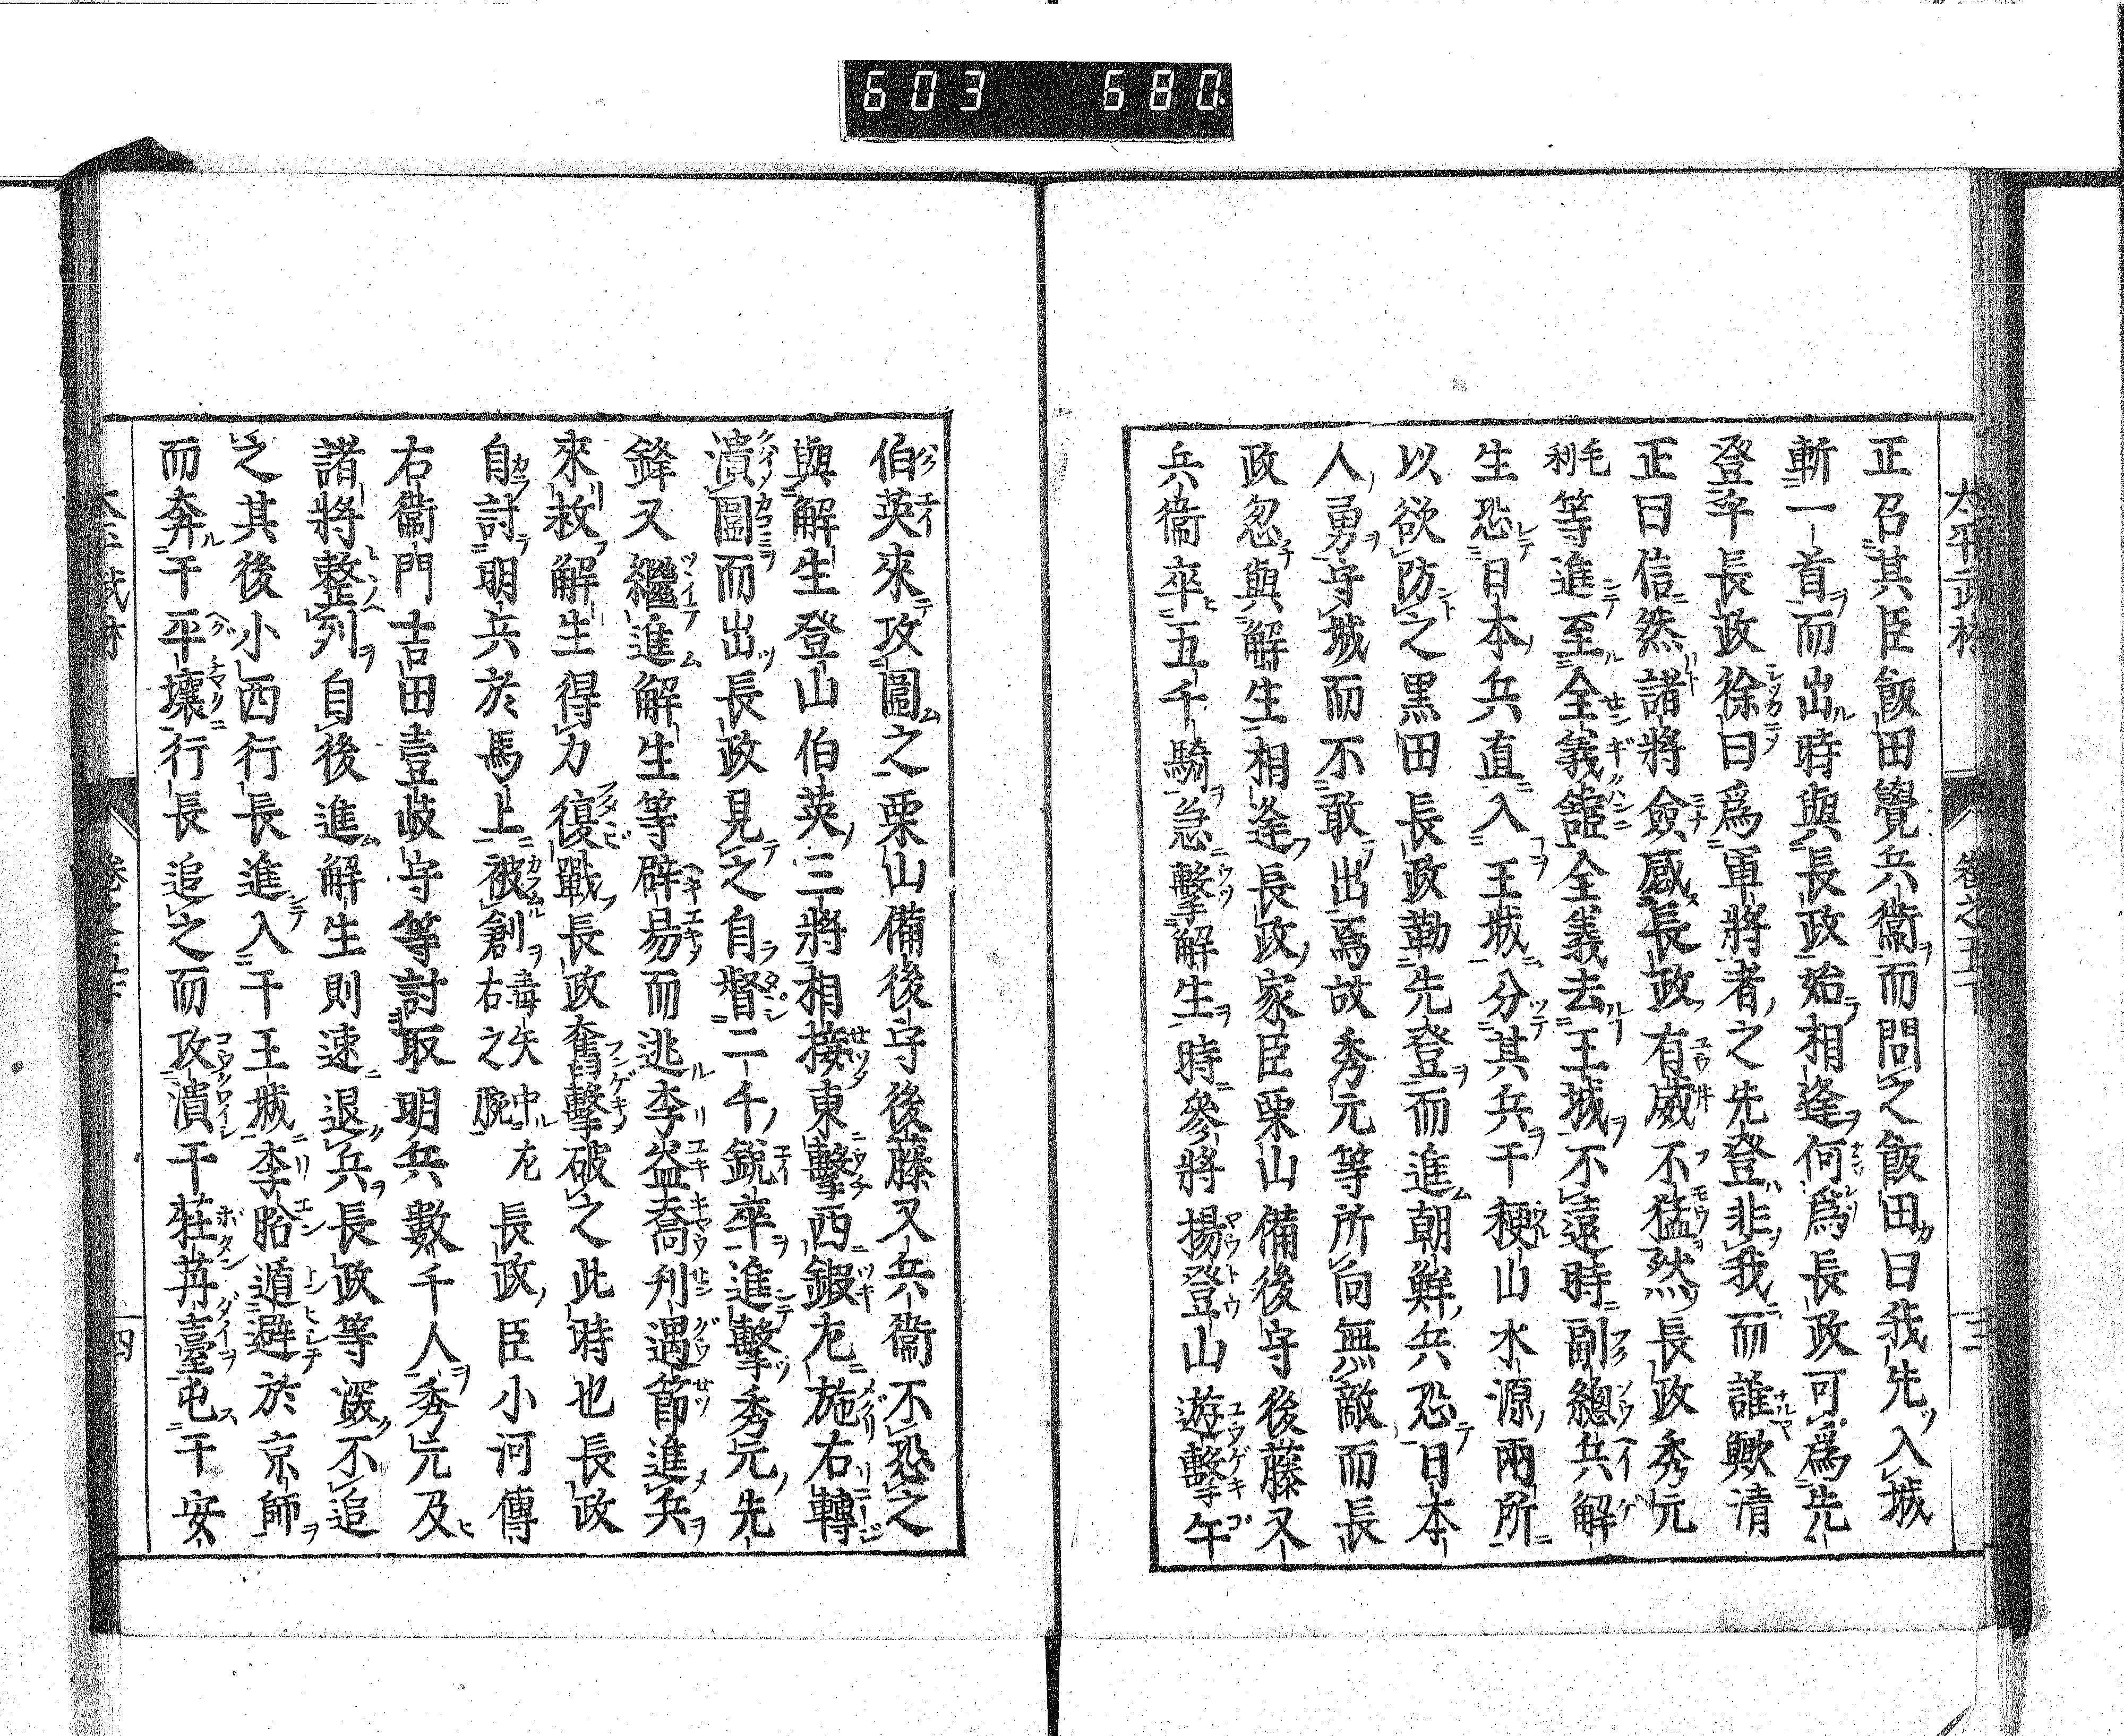 603 680
太平武林 卷之五十 三
正召其臣飯田覺兵衞而問之飯田曰我先入城
斬一首而出時與長政始相逢何爲長政可爲先
登乎長政徐曰爲軍將者之先登非我而誰歟清
正曰信然諸將僉感長政有威不猛然長政秀元
毛利等進至全義館全義去王城不遠時副總兵解
生恐日本兵直入王城分其兵干稷山水源兩所
以欲防之黒田長政勒先登而進朝鮮兵恐日本
人勇守城而不敢出焉故秀元等所向無敵而長
政忽與解生相逢長政家臣栗山備後守後藤又
兵衞卒五千騎急擊解生時參將揚登山遊擊午
伯英來攻圍之栗山備後守後藤又兵衞不恐之
與解生登山伯英三將相接東擊西鍛左施右轉
潰圍而出長政見之自督二千鋭卒進擊秀元先
鋒又繼進解生等辟易而逃李益喬刋遇節進兵
來救解生得力復戰長政奮擊破之此時也長政
自討明兵於馬上被創毒矢中左右之腕長政臣小河傳
右衞門吉田壹岐守等討取明兵數千人秀元及
諸將整列自後進解生則速退兵長政等深不追
之其後小西行長進入干王城李昖遁避於京師
而奔干平壤行長追之而攻潰干莊苒臺屯干安